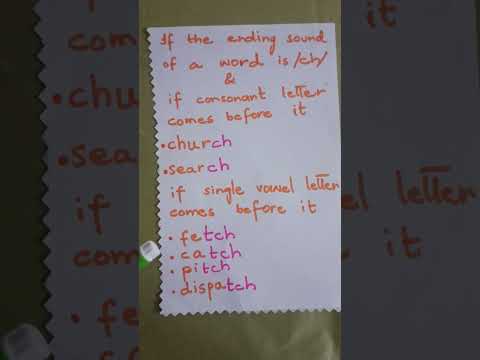 If the ending sound
of a word is /ch/
&
if consonant letter
comes before it
• church
• search
if single vowel letter
comes before it
• fetch
• catch
• pitch
• dispatch